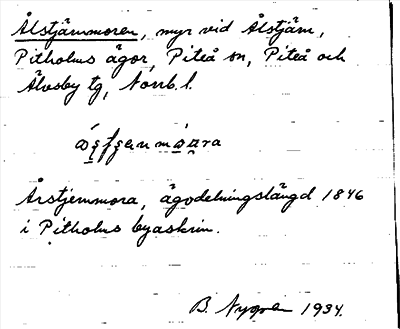 Ålstjärnmoren, myr vid Ålstjärn,
Pitholms ägor, Piteå sn, Piteå och
Älvsby tg, Norrb. l.
Årstjernmora, ägodelningslängd 1846
i Pitholms byaskrin.
B. Nygren 1934.